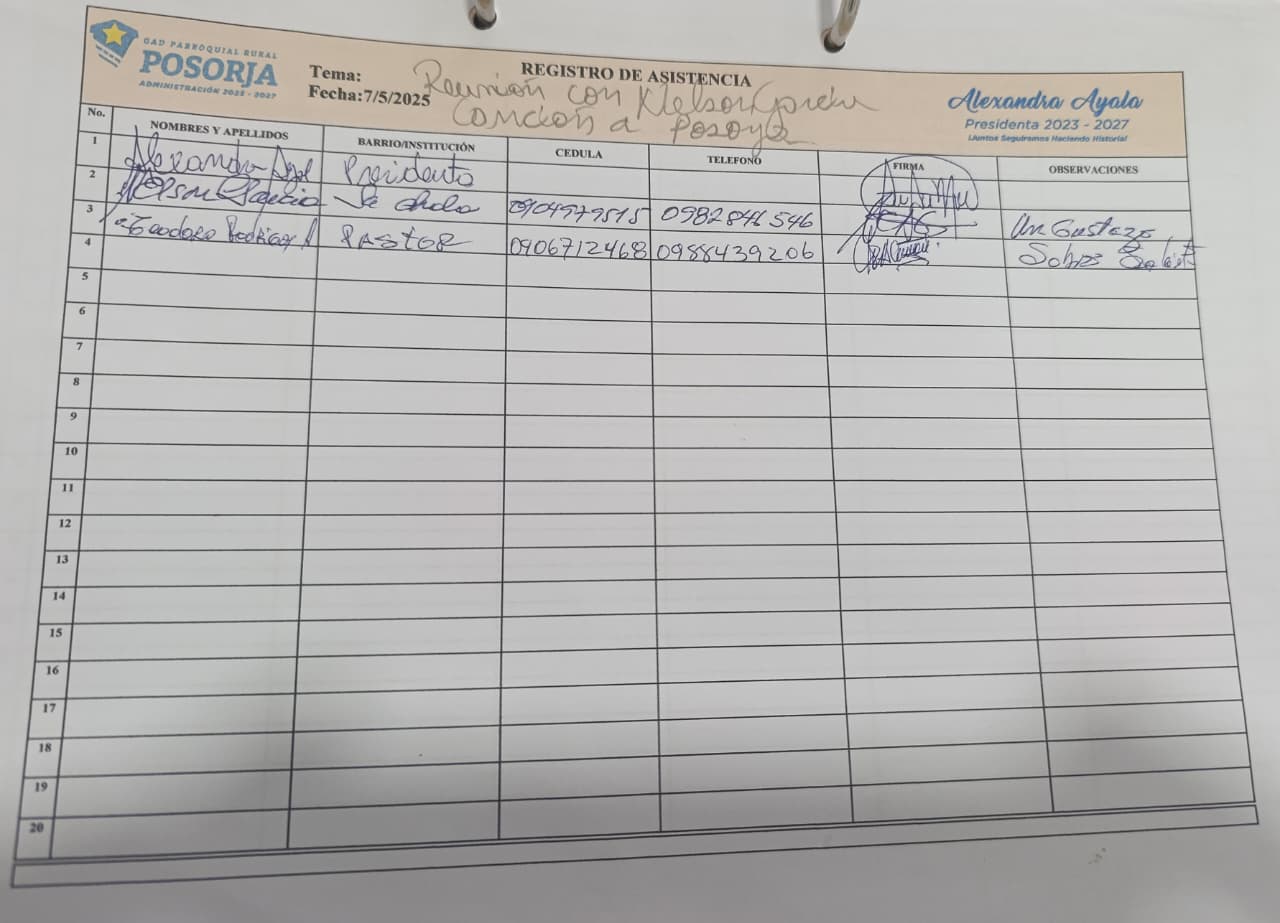 GAD PARROQUIAL RURAL
POSORJA
ADMINISTRACIÓN 2023 - 2027
REGISTRO DE ASISTENCIA
Tema: Reunión con Nelson García
Fecha:7/5/2025 Canción a Posorja
Alexandra Ayala
Presidenta 2023 - 2027
¡Juntos Seguiremos Haciendo Historia!
No. NOMBRES Y APELLIDOS BARRIO/INSTITUCIÓN CEDULA TELEFONO FIRMA OBSERVACIONES
1 Alexandra Ayal Presidenta
2 Nelson García 0982846546
3 Teodoro Rodríguez PASTOR 0906712468 0988439206 Un Gustazo
4 Sobre
5
6
7
8
9
10
11
12
13
14
15
16
17
18
19
20